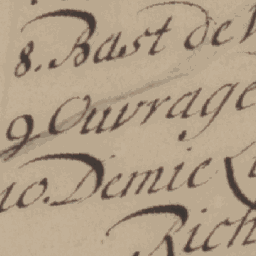 8. Bast de
9 Ouvrage
10. Demie
Rich